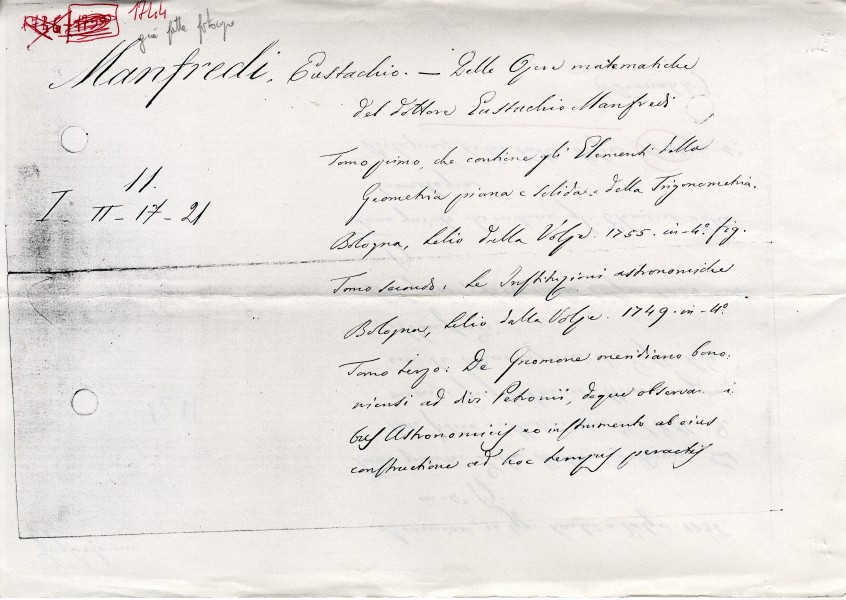 1736 - 1755 1744
già fatte fotocopie
Manfredi, Eustachio. — Delle Opere matematiche
del dottore Eustachio Manfredi
Tomo primo, che contiene gli Elementi della
Geometria piana e solida e della Trigonometria.
11.
I II - 17 - 21
Bologna, Lelio dalla Volpe. 1755. in-4º fig.
Tomo secondo: Le Instituzioni astronomiche
Bologna, Lelio dalla Volpe. 1749. in-4º
Tomo terzo: De Gnomone meridiano bono:
niensi ad divi Petronii, deque observa i
bus Astronomicis eo instrumento ab eius
constructione ad hoc tempus peractis